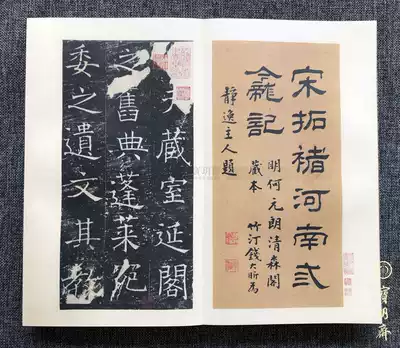 宋拓褚河南弍
龕記
明何元朗清森閣
藏本 竹汀錢大昕為
靜逸主人題
藏室延閣
之舊典蓬萊宛
委之遺文其教
寶月齋